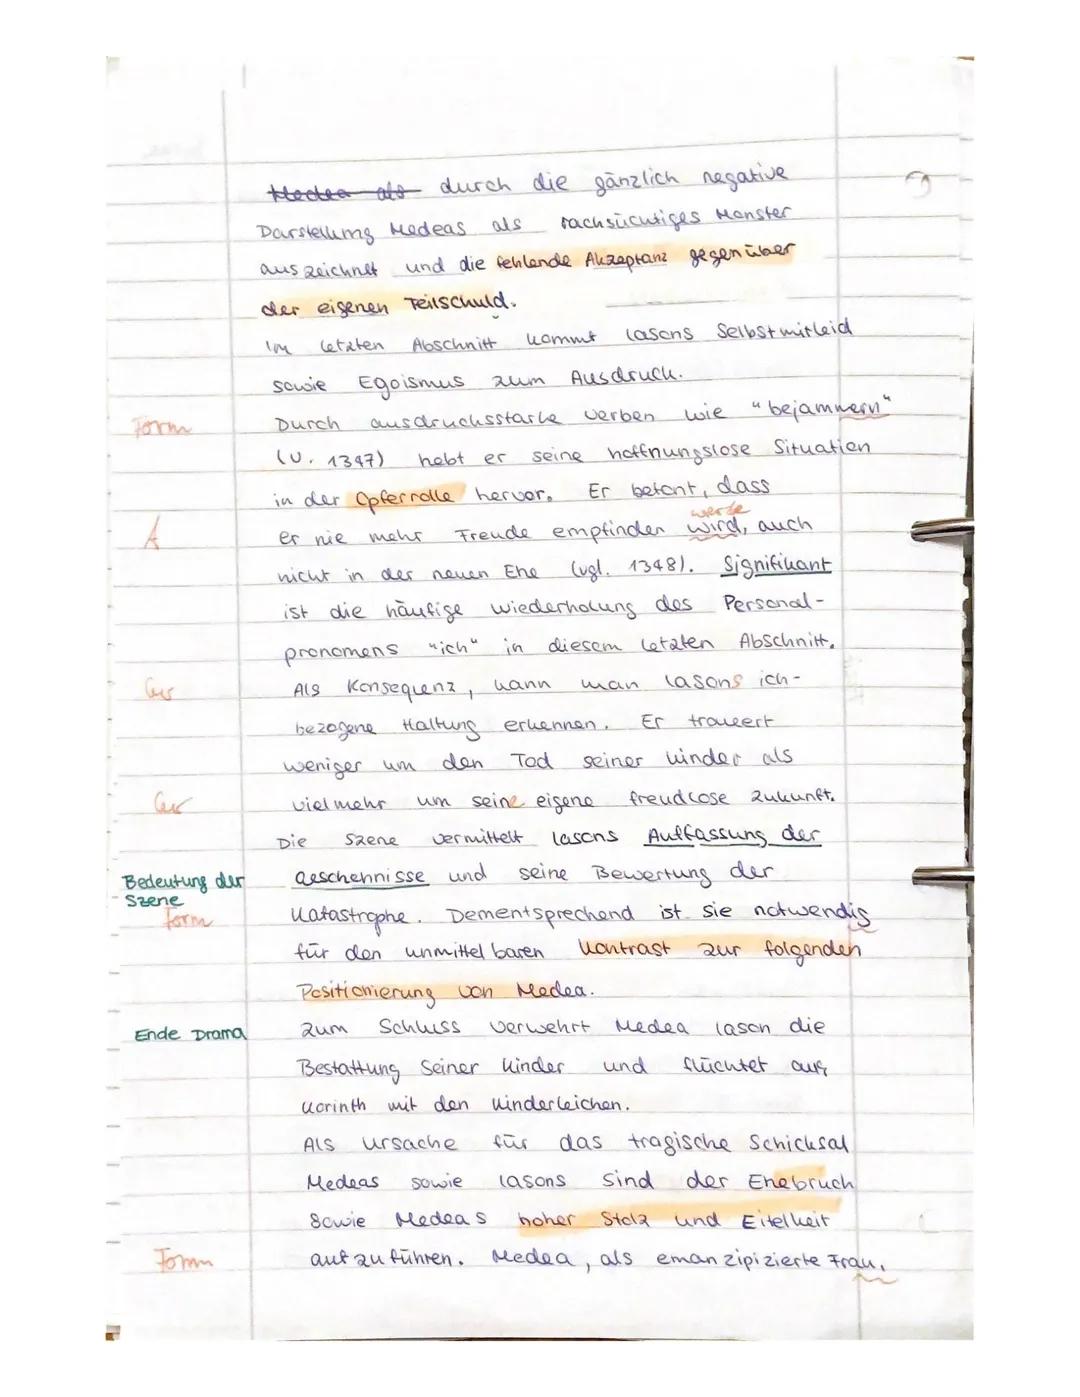 Medea als durch die gänzlich negative
Darstellung Medeas als rachsüchtiges Monster
auszeichnet und die fehlende Akzeptanz gegenüber
der eigenen Teilschuld.
Im letzten Abschnitt kommt Iasons Selbstmitleid
sowie Egoismus zum Ausdruck.
Form
Durch ausdrucksstarke Verben wie "bejammern"
(V. 1347) hebt er seine hoffnungslose Situation
in der Opferrolle hervor. Er betont, dass
werde
A
er nie mehr Freude empfinden wird, auch
nicht in der neuen Ehe (vgl. 1348). Signifikant
ist die häufige Wiederholung des Personal-
pronomens "ich" in diesem letzten Abschnitt.
Als Konsequenz, kann man Iasons ich-
bezogene Haltung erkennen. Er trauert
weniger um den Tod seiner Kinder als
vielmehr um seine eigene freudlose Zukunft.
Die Szene vermittelt Iasons Auffassung der
Bedeutung der Szene
Geschehnisse und seine Bewertung der
Form
Katastrophe. Dementsprechend ist sie notwendig
für den unmittelbaren Kontrast zur folgenden
Positionierung von Medea.
Ende Drama
Zum Schluss verwehrt Medea Iason die
Bestattung seiner Kinder und flüchtet aus
Korinth mit den Kinderleichen.
Als Ursache für das tragische Schicksal
Medeas sowie Iasons sind der Ehebruch
sowie Medeas hoher Stolz und Eitelkeit
Form
aufzuführen. Medea, als emanzipizierte Frau,